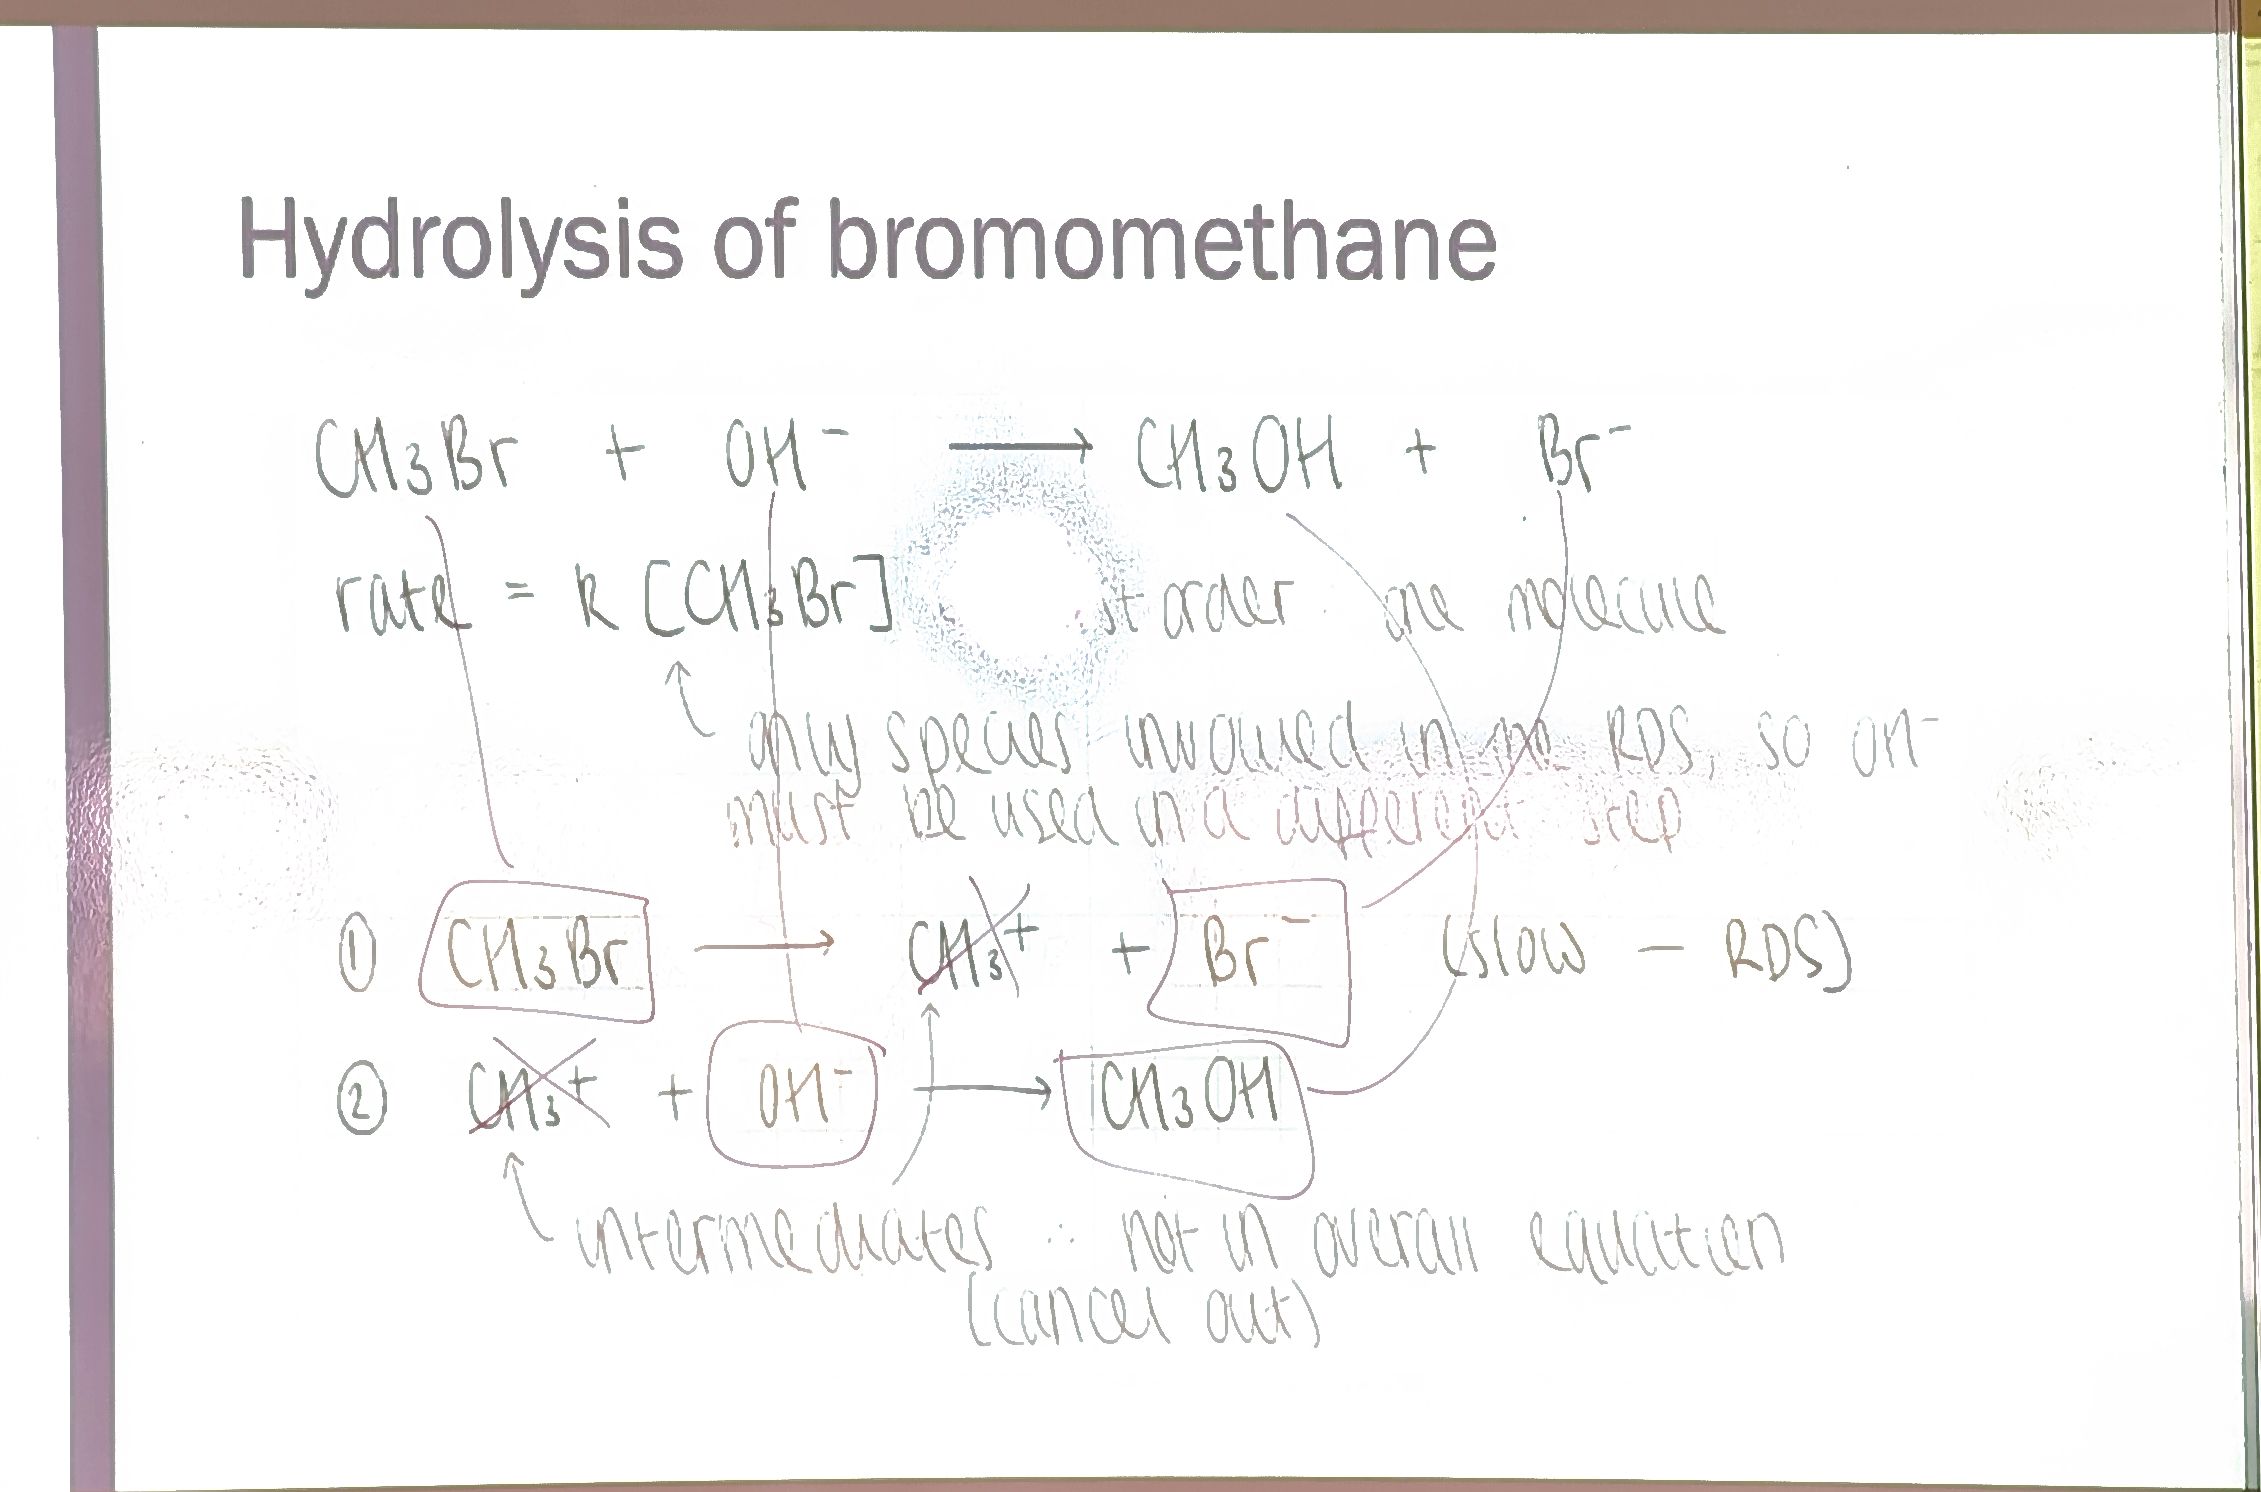 Hydrolysis of bromomethane
CH3Br + OH⁻ → CH3OH + Br⁻
rate = k [CH3Br] st order : one molecule
↑ only species involved in the RDS, so OH⁻
must be used in a different step
① CH3Br → CH3⁺ + Br⁻ (slow – RDS)
② CH3⁺ + OH⁻ → CH3OH
intermediates ∴ not in overall equation
(cancel out)